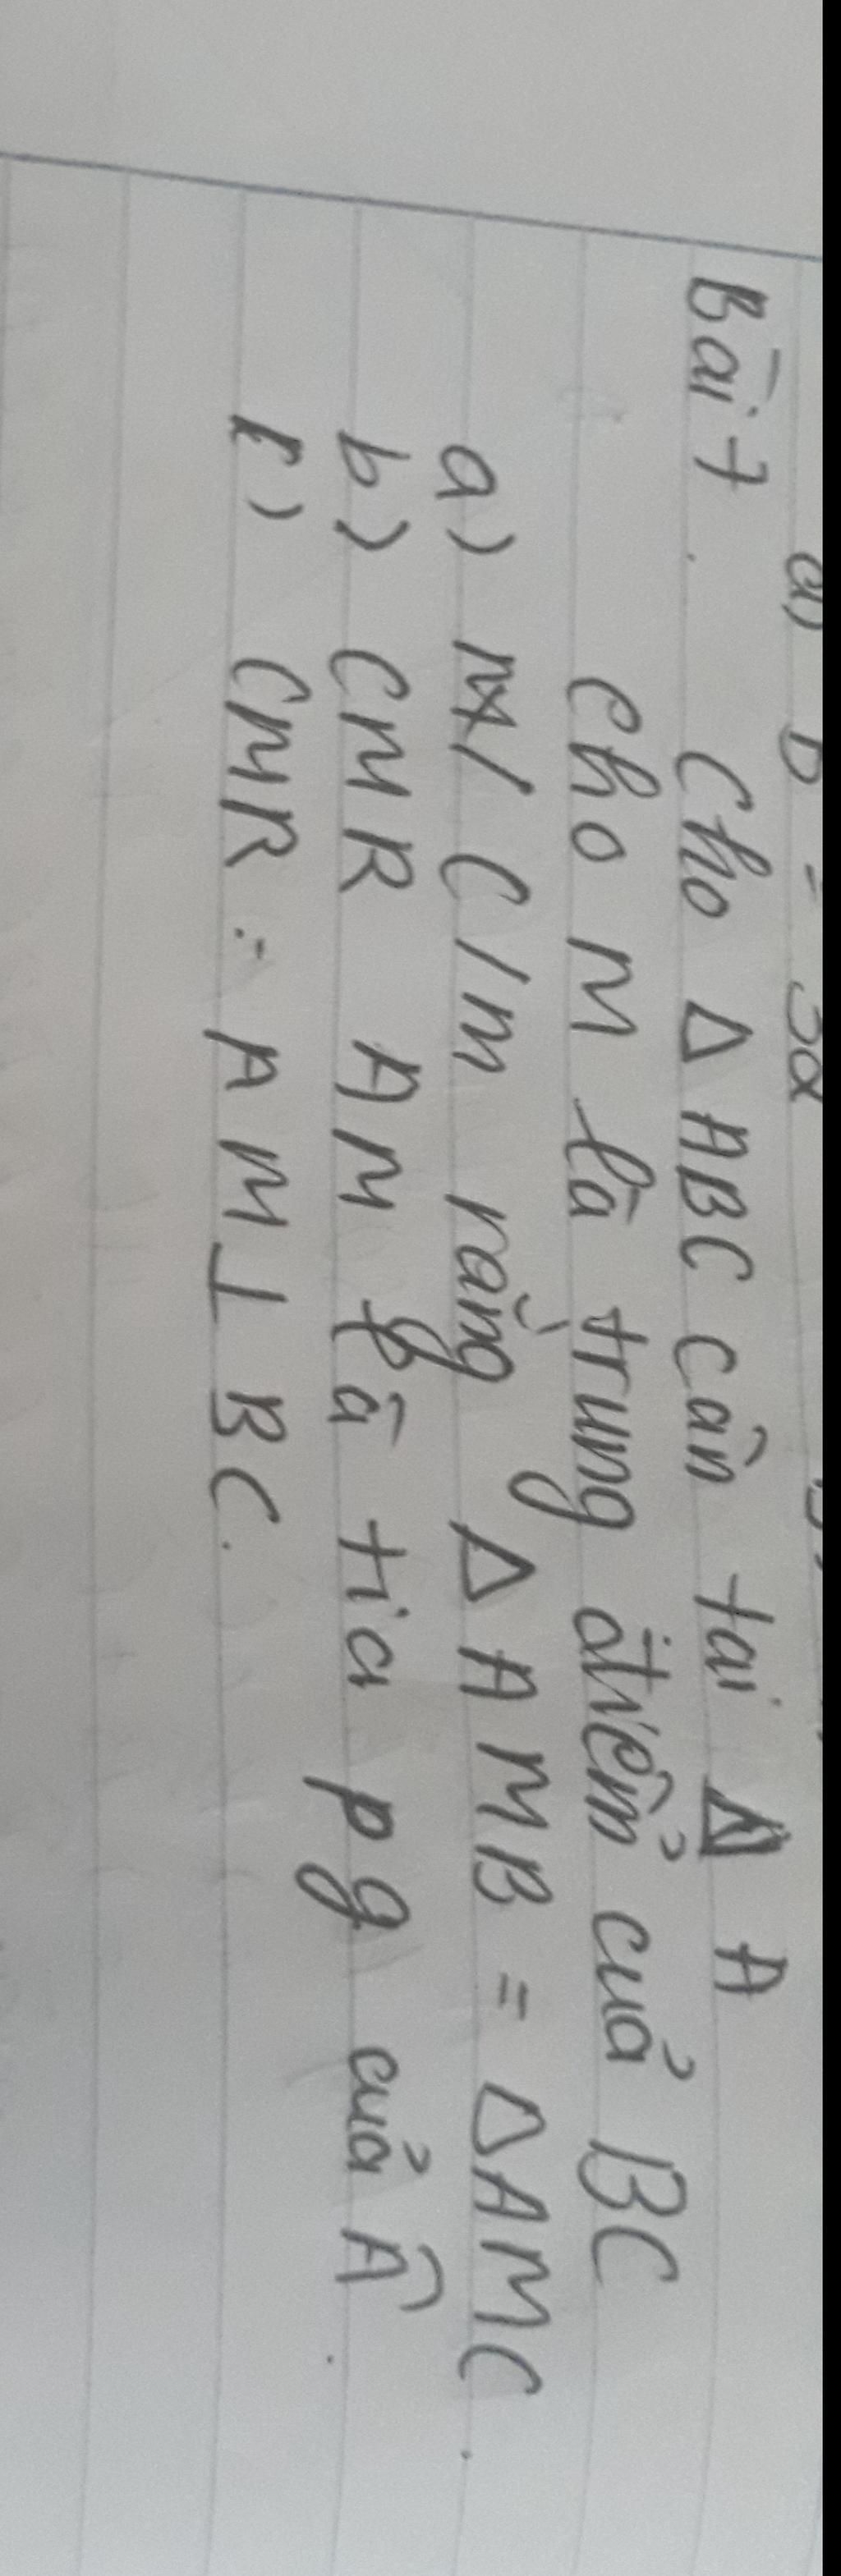 Bài 7. Cho Δ ABC cân tại A
Cho M là trung điểm của BC
a) C/m rằng Δ AMB = Δ AMC.
b) CMR AM là tia pg của Â.
c) CMR : AM ⊥ BC.